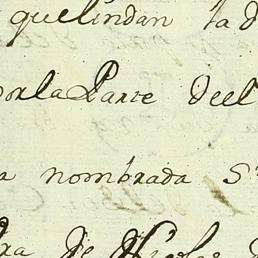 quelindan la d
porla Parte deel
a nombrada S
de Nicolas